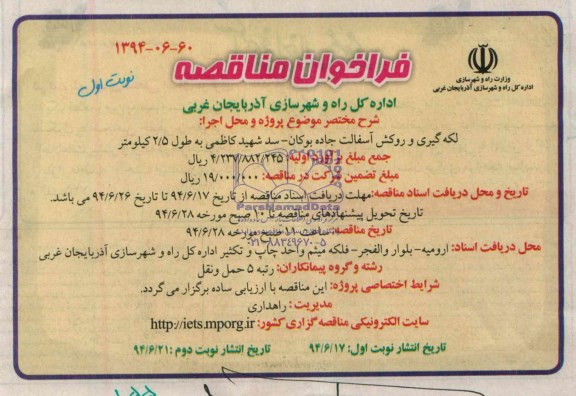 ۱۳۹۴-۰۶-۶۰
نوبت اول
فراخوان مناقصه
وزارت راه و شهرسازی
اداره کل راه و شهرسازی آذربایجان غربی
اداره کل راه و شهرسازی آذربایجان غربی
شرح مختصر موضوع پروژه و محل اجرا:
لکه گیری و روکش آسفالت جاده بوکان-سد شهید کاظمی به طول ۲/۵ کیلومتر
جمع مبلغ برآورد اولیه: ۴/۲۳۷/۸۸۲/۲۴۵ ریال
مبلغ تضمین شرکت در مناقصه: ۱۹۰/۰۰۰/۰۰۰ ریال
تاریخ و محل دریافت اسناد مناقصه: مهلت دریافت اسناد مناقصه از تاریخ ۹۴/۶/۱۷ تا تاریخ ۹۴/۶/۲۶ می باشد.
تاریخ تحویل پیشنهادهای مناقصه تا ۱۰ صبح مورخه ۹۴/۶/۲۸
تاریخ مناقصه: ساعت ۱۱ صبح مورخه ۹۴/۶/۲۸
محل دریافت اسناد: ارومیه- بلوار والفجر- فلکه میثم واحد چاپ و تکثیر اداره کل راه و شهرسازی آذربایجان غربی
رشته و گروه پیمانکاران: رتبه ۵ حمل ونقل
شرایط اختصاصی پروژه: این مناقصه با ارزیابی ساده برگزار می گردد.
مدیریت: راهداری
سایت الکترونیکی مناقصه گزاری کشور: http://iets.mporg.ir
تاریخ انتشار نوبت اول: ۹۴/۶/۱۷ تاریخ انتشار نوبت دوم: ۹۴/۶/۲۱
ParsNamadData
۰۲۱-۸۸۳۴۹۶۷۰-۵